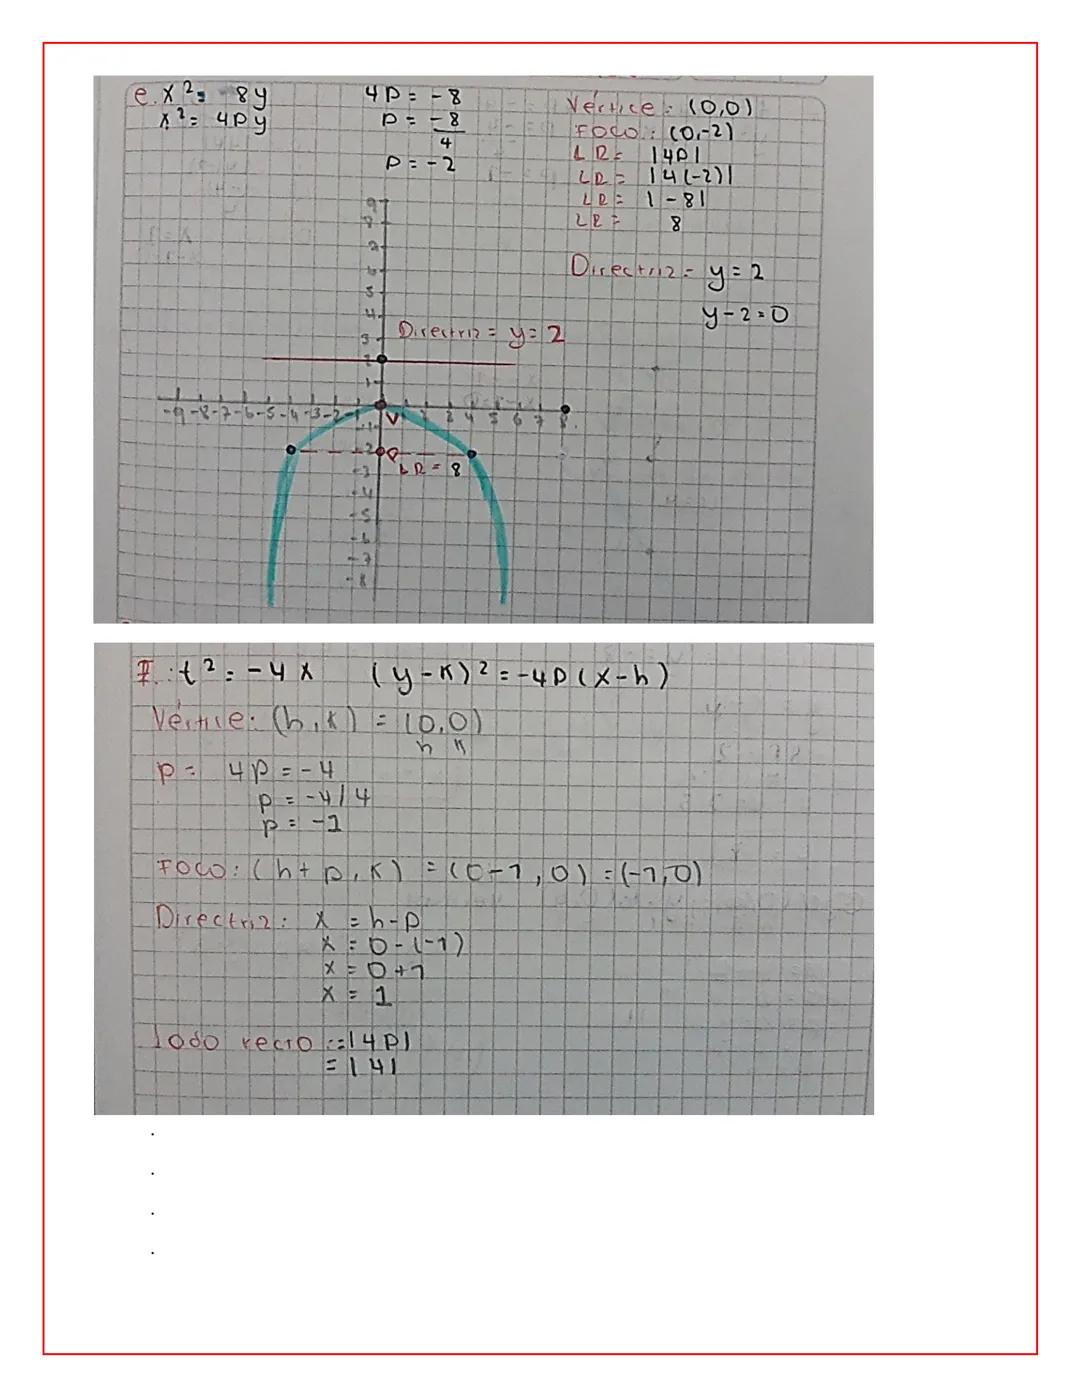 e. x² = 8y
x² = 4py
4p = -8
p = -8
4
p = -2
Vértice: (0,0)
FOCO: (0,-2)
LR = |4p|
LR = |4(-2)|
LR = |-8|
LR = 8
Directriz = y = 2
y-2=0
9
5
4
3
Directriz = y = 2
2
1
-9 -8 -7 -6 -5 -4 -3 -2 -1
V
3 4 5 6 7 8
-1
-2
LR = 8
-3
-4
-5
-6
-7
-8
t² = -4x (y-k)² = -4p(x-h)
Vértice: (h,k) = (0,0)
h k
p = 4p = -4
p = -4/4
p = -1
FOCO: (h+p,k) = (0-1,0) = (-1,0)
Directriz: x = h-p
x = 0-(-1)
x = 0+1
x = 1
lado recto := |4p|
= |4|
.
.
.
.